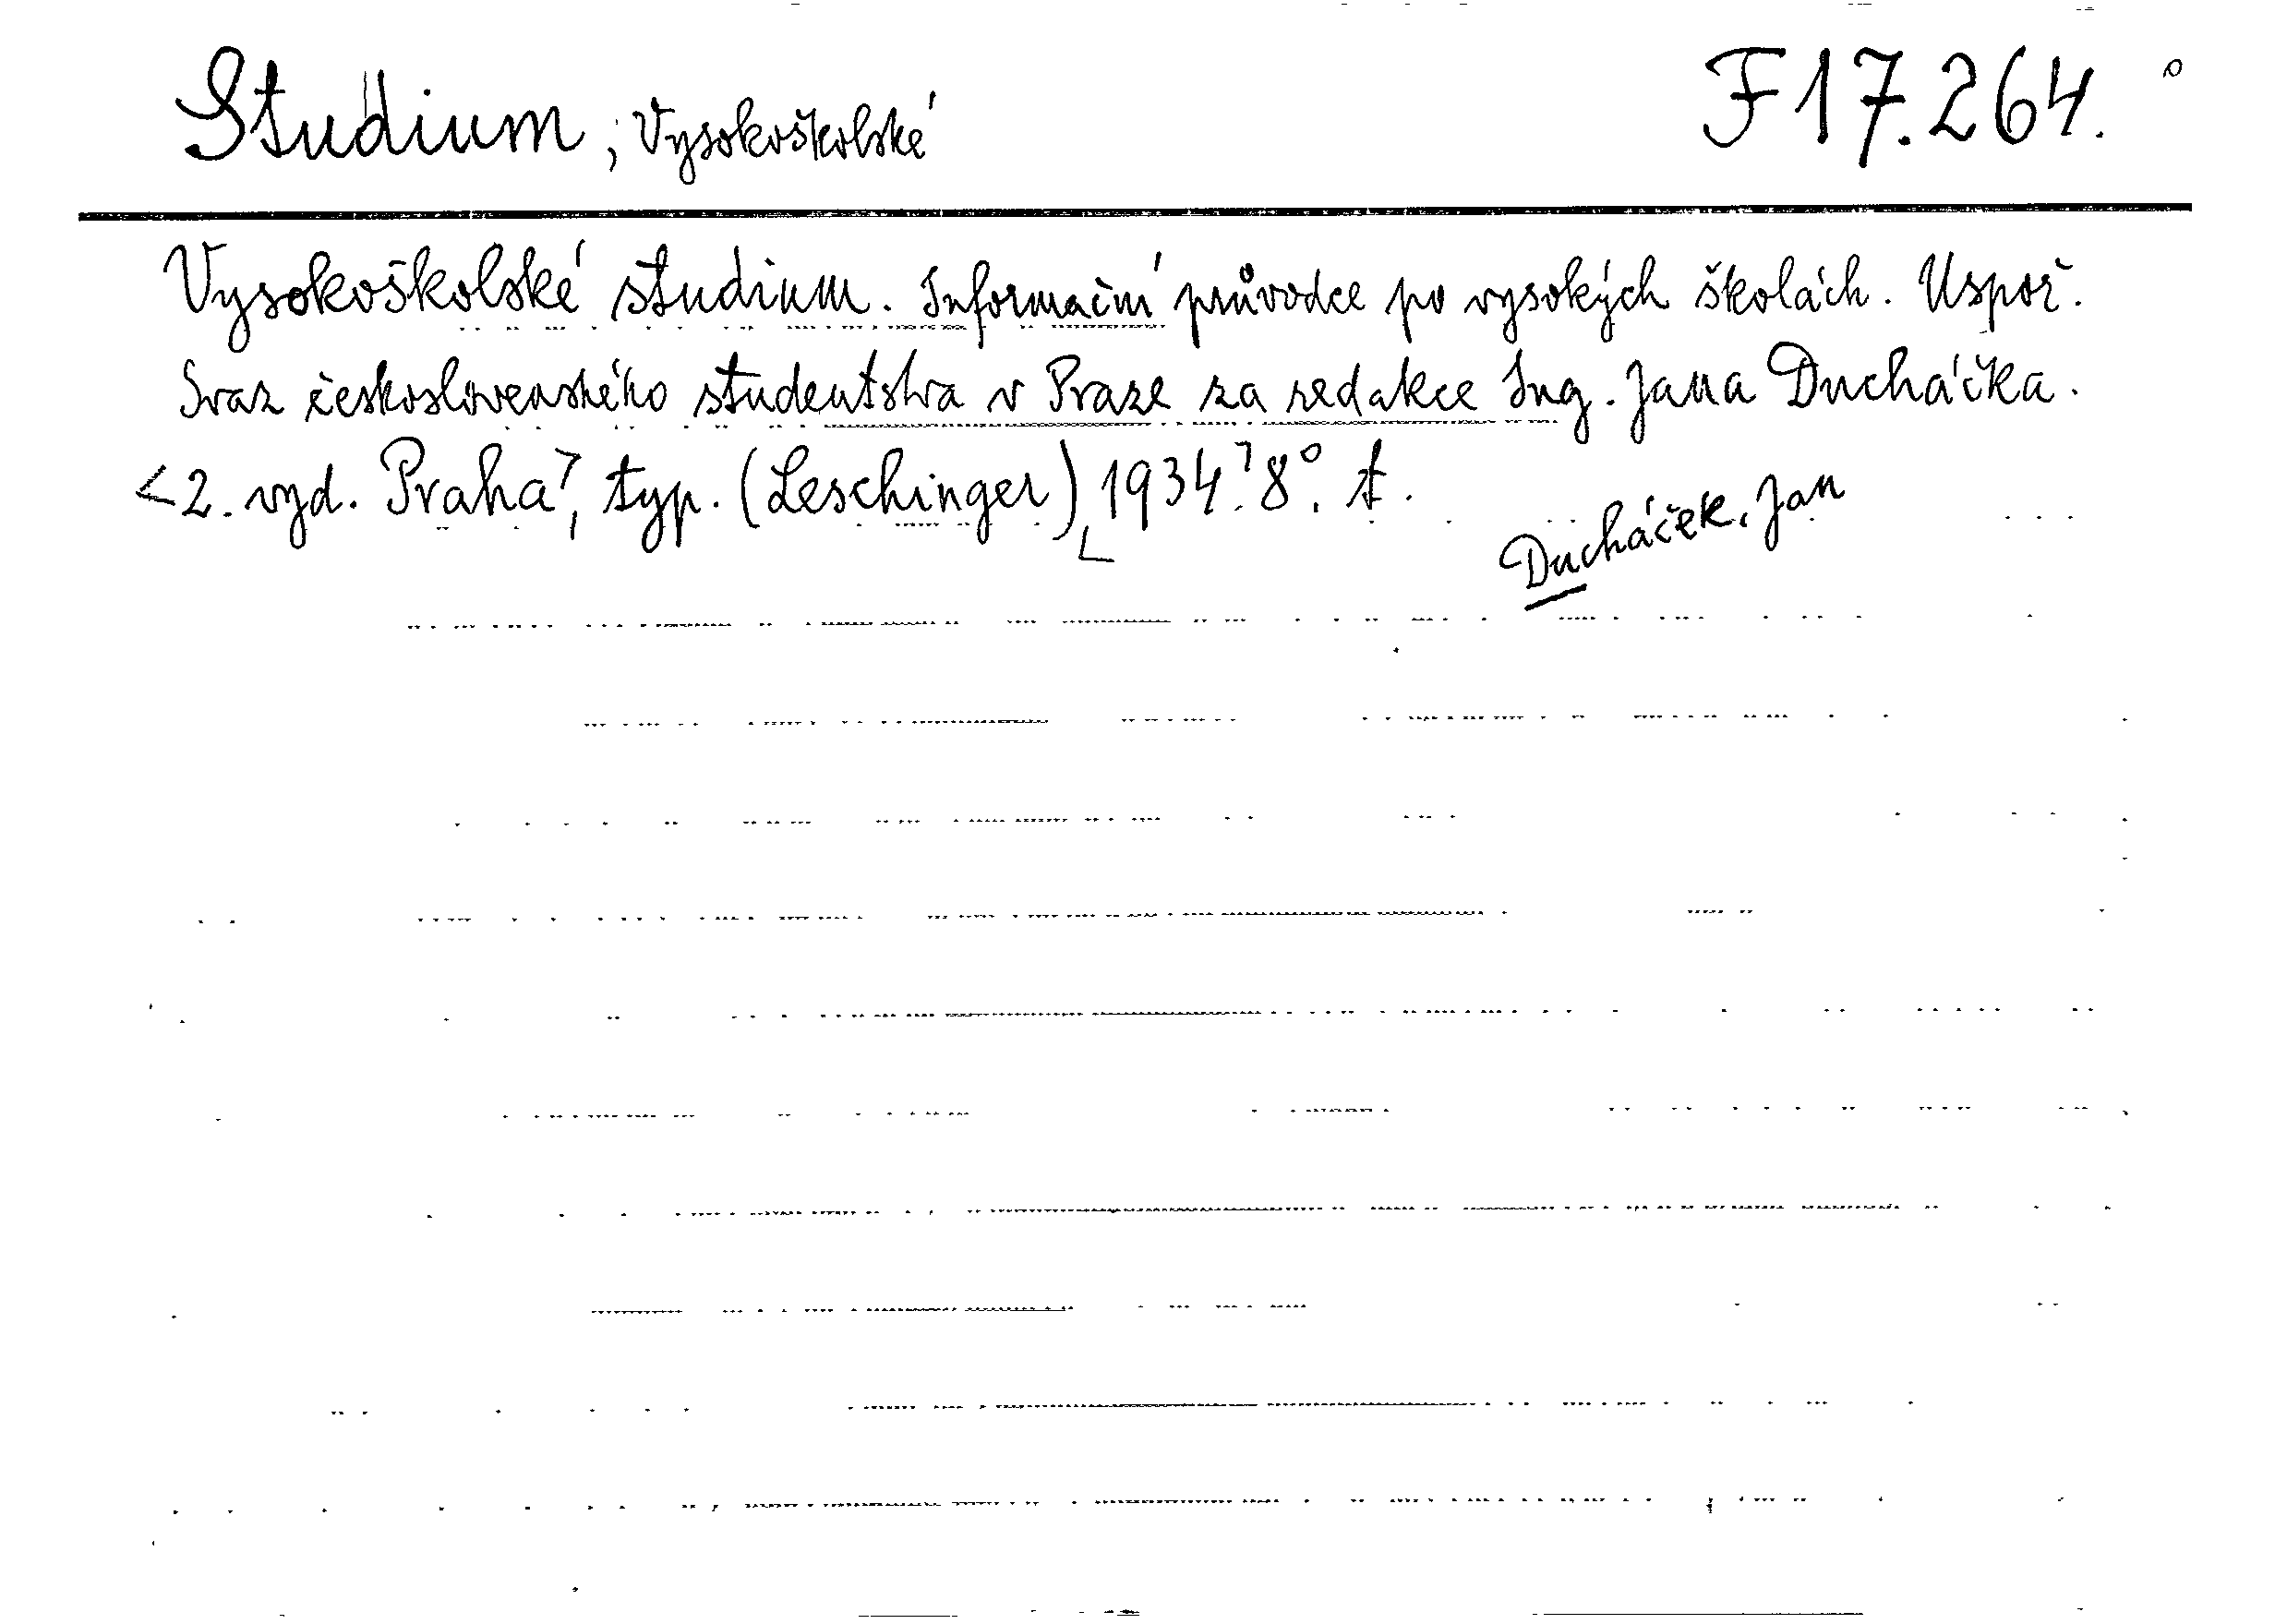 Studium, Vysokoškolské F 17.264.
Vysokoškolské studium. Informační průvodce po vysokých školách. Uspoř.
Svaz československého studentstva v Praze za redakce Ing. Jana Ducháčka.
<2. vyd. Praha>, typ. (Leschinger) <1934>. 8°. t.
Ducháček, Jan